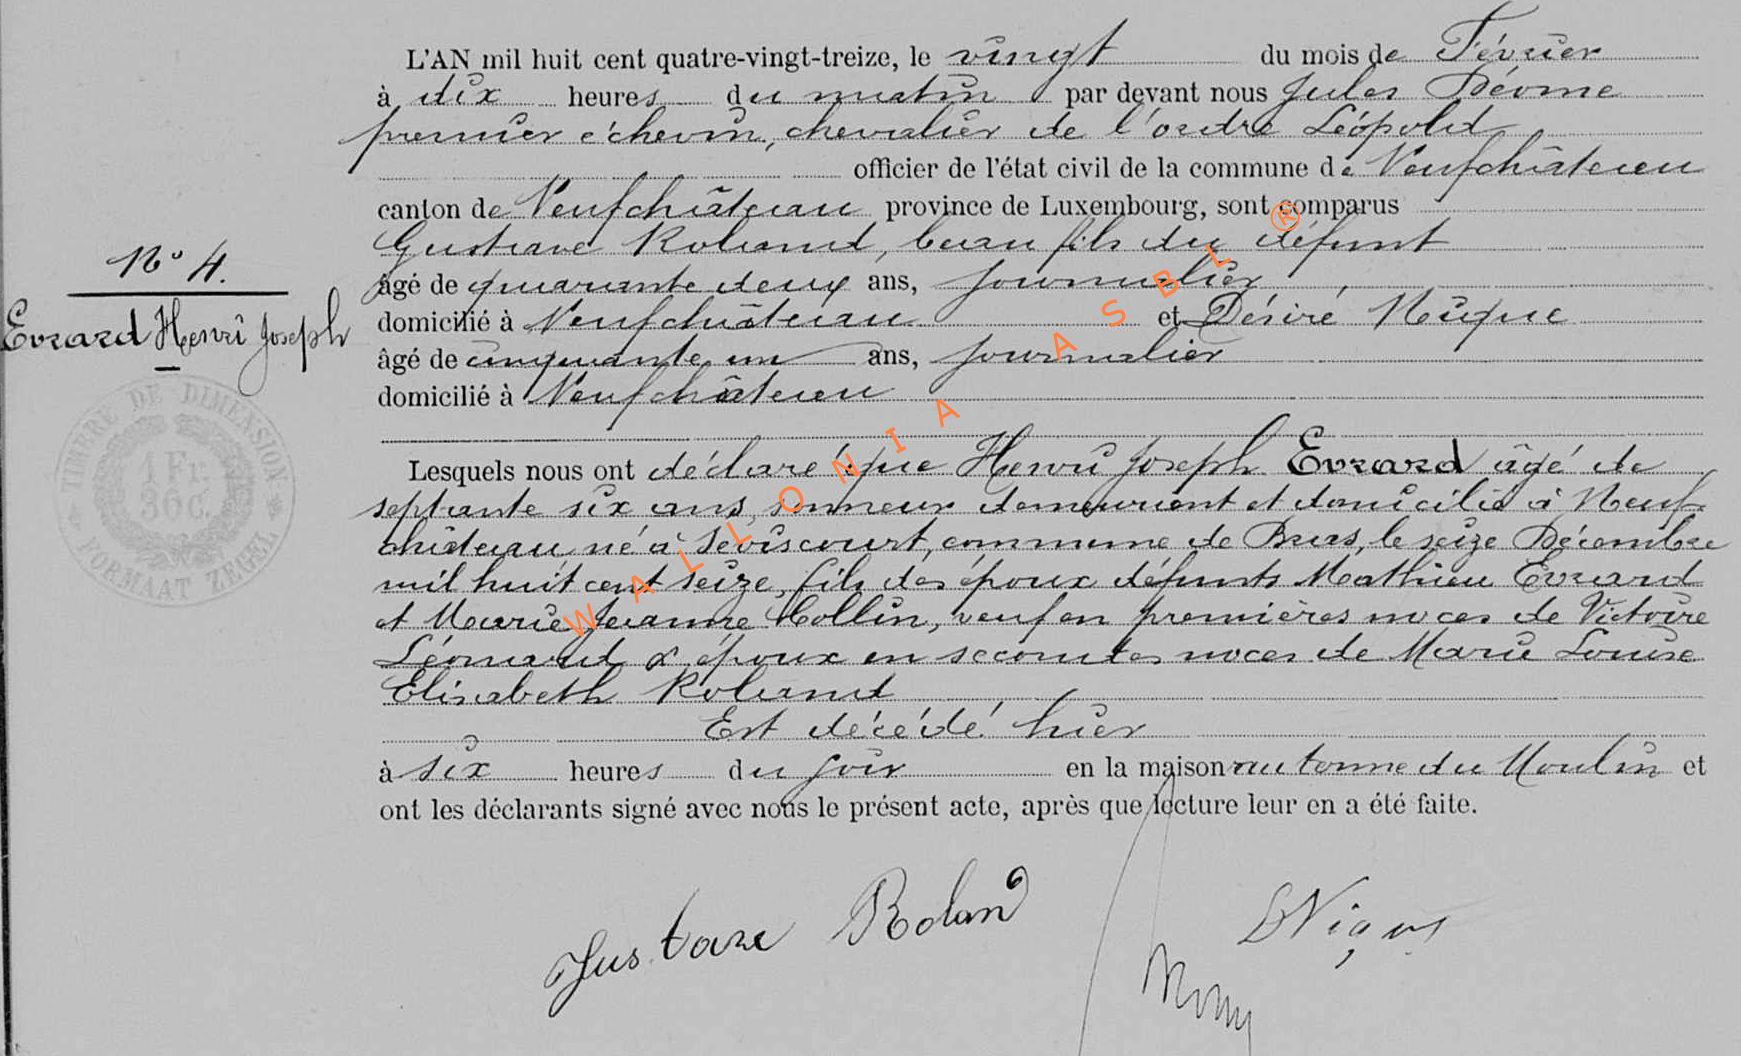 L'AN mil huit cent quatre-vingt-treize, le vingt du mois de Février
à dix heures du matin par devant nous Jules
premier échevin, chevalier de l'ordre Léopold
officier de l'état civil de la commune de Neufchâteau
canton de Neufchâteau province de Luxembourg, sont comparus
Gustave Roland, beau fils du défunt
N° 4.
âgé de quarante deux ans, journalier
Evrard Henri Joseph
domicilié à Neufchâteau et Désiré
âgé de cinquante un ans, journalier
domicilié à Neufchâteau
TIMBRE DE DIMENSION
1 Fr.
36 C.
FORMAAT ZEGEL
Lesquels nous ont déclaré que Henri Joseph Evrard âgé de
septante six ans, sonneur demeurant et domicilié à Neuf-
château né à Séviscourt, commune de Bras, le seize Décembre
mil huit cent seize, fils des époux défunts Mathieu Evrard
et Marie Jeanne Collin, veuf en premières noces de Victoire
Léonard & époux en secondes noces de Marie Louise
Elisabeth Roland
Est décédé hier
à six heures du soir en la maison du Moulin et
ont les déclarants signé avec nous le présent acte, après que lecture leur en a été faite.
Gustave Roland
WALLONIA ASBL ®